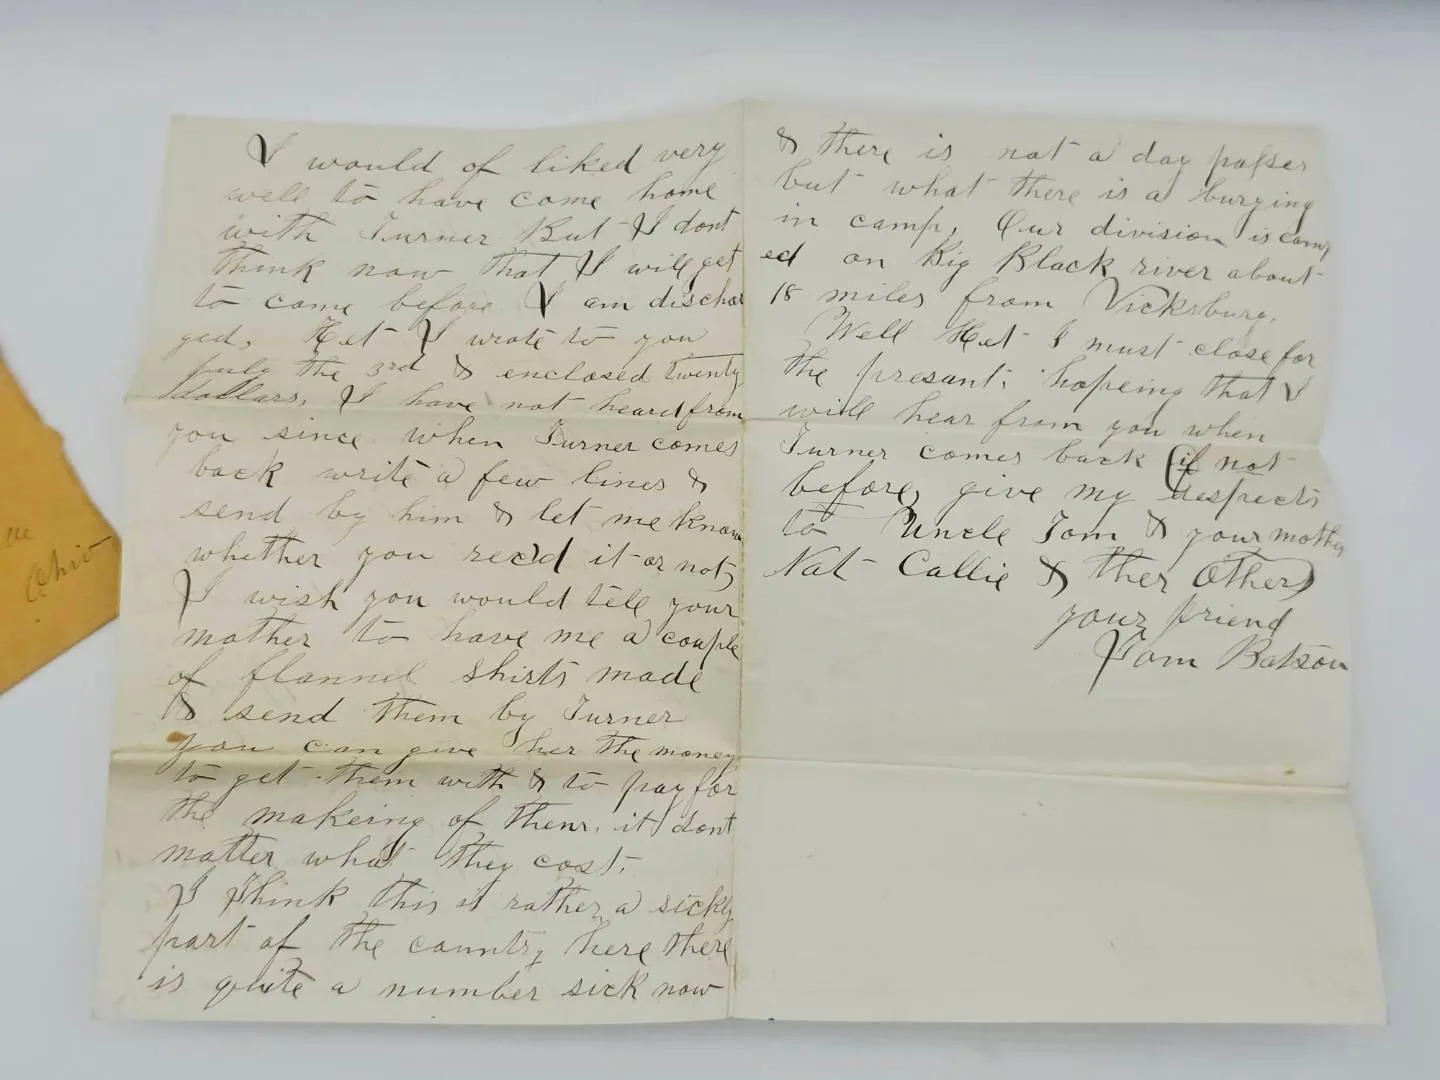 I would of liked very
well to have come home
with Turner But I dont
think now that I will get
to come before I am dischar
ged. Het I wrote to you
July the 3rd & enclosed twenty
dollars, I have not heard from
you since. when Turner comes
back write a few lines &
send by him & let me know
whether you rec'd it or not,
I wish you would tell your
mother to have me a couple
of flannel shirts made
& send them by Turner
you can give her the money
to get them with & to pay for
the makeing of them. it dont
matter what they cost.
I think this is rather a sickly
part of the country here there
is quite a number sick now
& there is not a day passes
but what there is a burying
in camp, Our division is camp
ed on Big Black river about
18 miles from Vicksburg.
Well Het I must close for
the presant, hopeing that I
will hear from you when
Turner comes back (if not
before, give my respects
to Uncle Tom & your mother
Nat Callie & ther Other)
your friend
Tom Batson
Ohio